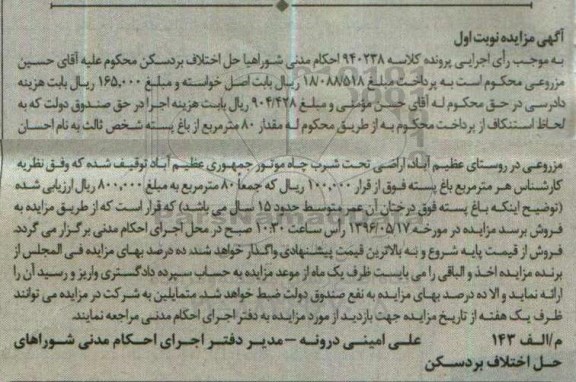 آگهی مزایده نوبت اول
به موجب رأی اجرایی پرونده کلاسه ۹۴۰۲۳۸ احکام مدنی شوراهیا حل اختلاف بردسکن محکوم علیه آقای حسین
مزروعی محکوم است به پرداخت مبلغ ۱۸۰۸۸/۵۱۸ ریال بابت اصل خواسته و مبلغ ۱۶۵,۰۰۰ ریال بابت هزینه
دادرسی در حق محکوم له آقای حسن مؤمنی و مبلغ ۹۰۴/۴۲۸ ریال بابت هزینه اجرا در حق صندوق دولت که به
لحاظ استنکاف از پرداخت محکوم به از طریق محکوم له مقدار ۸۰ مترمربع از باغ پسته شخص ثالث به نام احسان
مزروعی در روستای عظیم آباد، اراضی تحت شرب چاه موتور جمهوری عظیم آباد توقیف شده که وفق نظریه
کارشناس هر مترمربع باغ پسته فوق از قرار ۱۰۰,۰۰۰ ریال که جمعاً ۸۰ مترمربع به مبلغ ۸۰۰,۰۰۰ ریال ارزیابی شده
(توضیح اینکه باغ پسته فوق درختان آن عمر متوسط حدود ۱۵ سال می باشد) که قرار است که از طریق مزایده به
فروش برسد مزایده در مورخه ۱۳۹۶/۰۵/۱۷ رأس ساعت ۱۰:۳۰ صبح در محل آجرای احکام مدنی برگزار می گردد.
فروش از قیمت پایه شروع و به بالاترین قیمت پیشنهادی واگذار خواهند شد، ده درصد بهای مزایده فی المجلس از
برنده مزایده اخذ و الباقی را می بایست ظرف یک ماه از موعد مزایده به حساب سپرده دادگستری واریز و رسید آن را
ارائه نماید و الا ده درصد بهای مزایده به نفع صندوق دولت ضبط خواهد شد. متمایلین به شرکت در مزایده می توانند
ظرف یک هفته از تاریخ مزایده جهت بازدید از مورد مزایده به دفتر اجرای احکام مدنی مراجعه نمایند.
م/الف ۱۴۳ علی امینی درونه – مدیر دفتر اجرای احکام مدنی شوراهای
حل اختلاف بردسکن